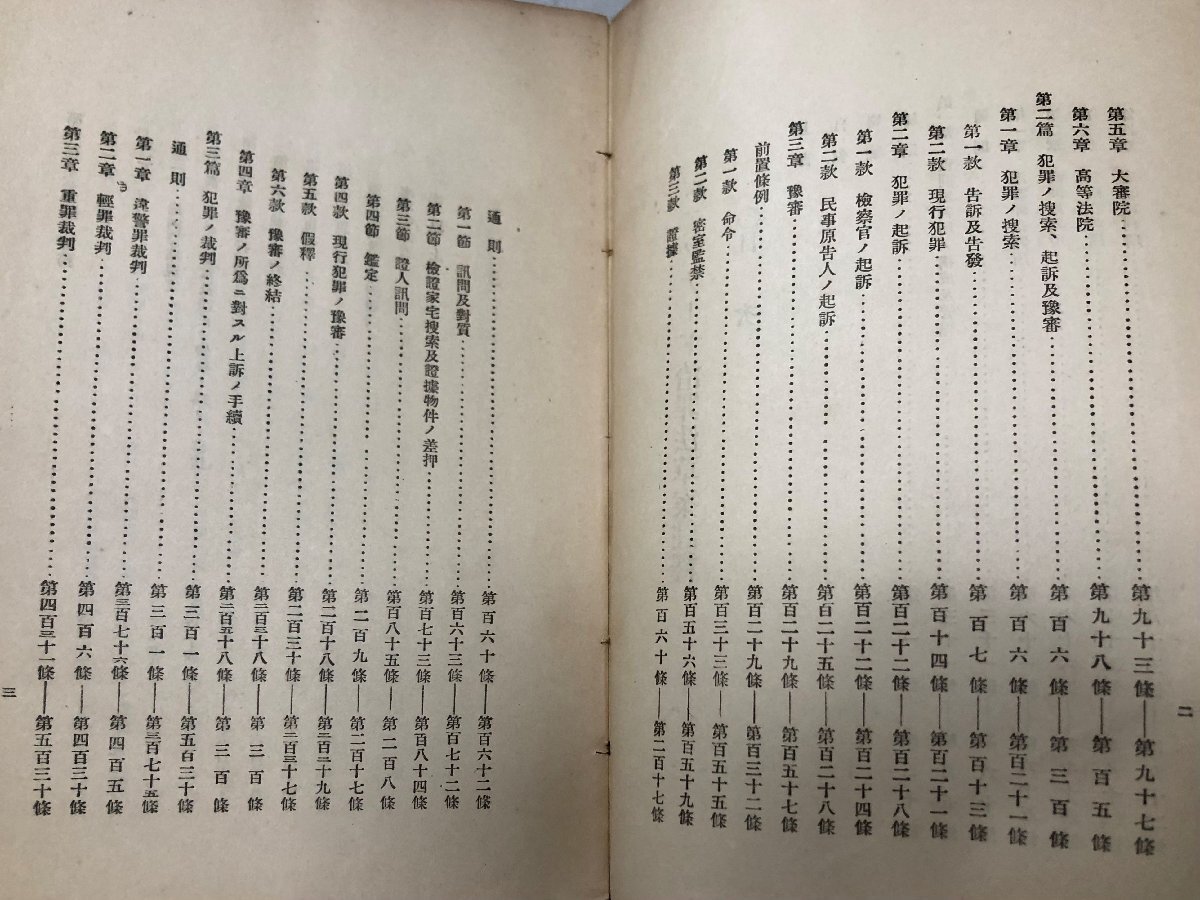 第五章 大審院……第九十三條――第九十七條
第六章 高等法院……第九十八條――第百五條
第二篇 犯罪ノ搜索、起訴及豫審……第百六條――第三百條
第一章 犯罪ノ搜索……第百六條――第百二十一條
第一款 告訴及告發……第百七條――第百十三條
第二款 現行犯罪……第百十四條――第百二十一條
第二章 犯罪ノ起訴……第百二十二條――第百二十八條
第一款 檢察官ノ起訴……第百二十二條――第百二十四條
第二款 民事原告人ノ起訴……第百二十五條――第百二十八條
第三章 豫審……第百二十九條――第百五十七條
前置條例……第百二十九條――第百三十二條
第一款 命令……第百三十三條――第百五十五條
第二款 密室監禁……第百五十六條――第百五十九條
第三款 證據……第百六十條――第二百十七條
二
通則……第百六十條――第百六十二條
第一節 訊問及對質……第百六十三條――第百七十二條
第二節 檢證家宅搜索及證據物件ノ差押……第百七十三條――第百八十四條
第三節 證人訊問……第百八十五條――第二百八條
第四節 鑑定……第二百九條――第二百十七條
第四款 現行犯罪ノ豫審……第二百十八條――第二百二十九條
第五款 假釋……第二百三十條――第二百三十七條
第六款 豫審ノ終結……第二百三十八條――第三百條
第四章 豫審ノ所爲ニ對スル上訴ノ手續……第二百五十八條――第三百條
第三篇 犯罪ノ裁判……第三百一條――第五百三十條
通則……第三百一條――第三百七十五條
第一章 違警罪裁判……第三百七十六條――第四百五條
第二章 輕罪裁判……第四百六條――第四百三十條
第三章 重罪裁判……第四百三十一條――第五百三十條
三